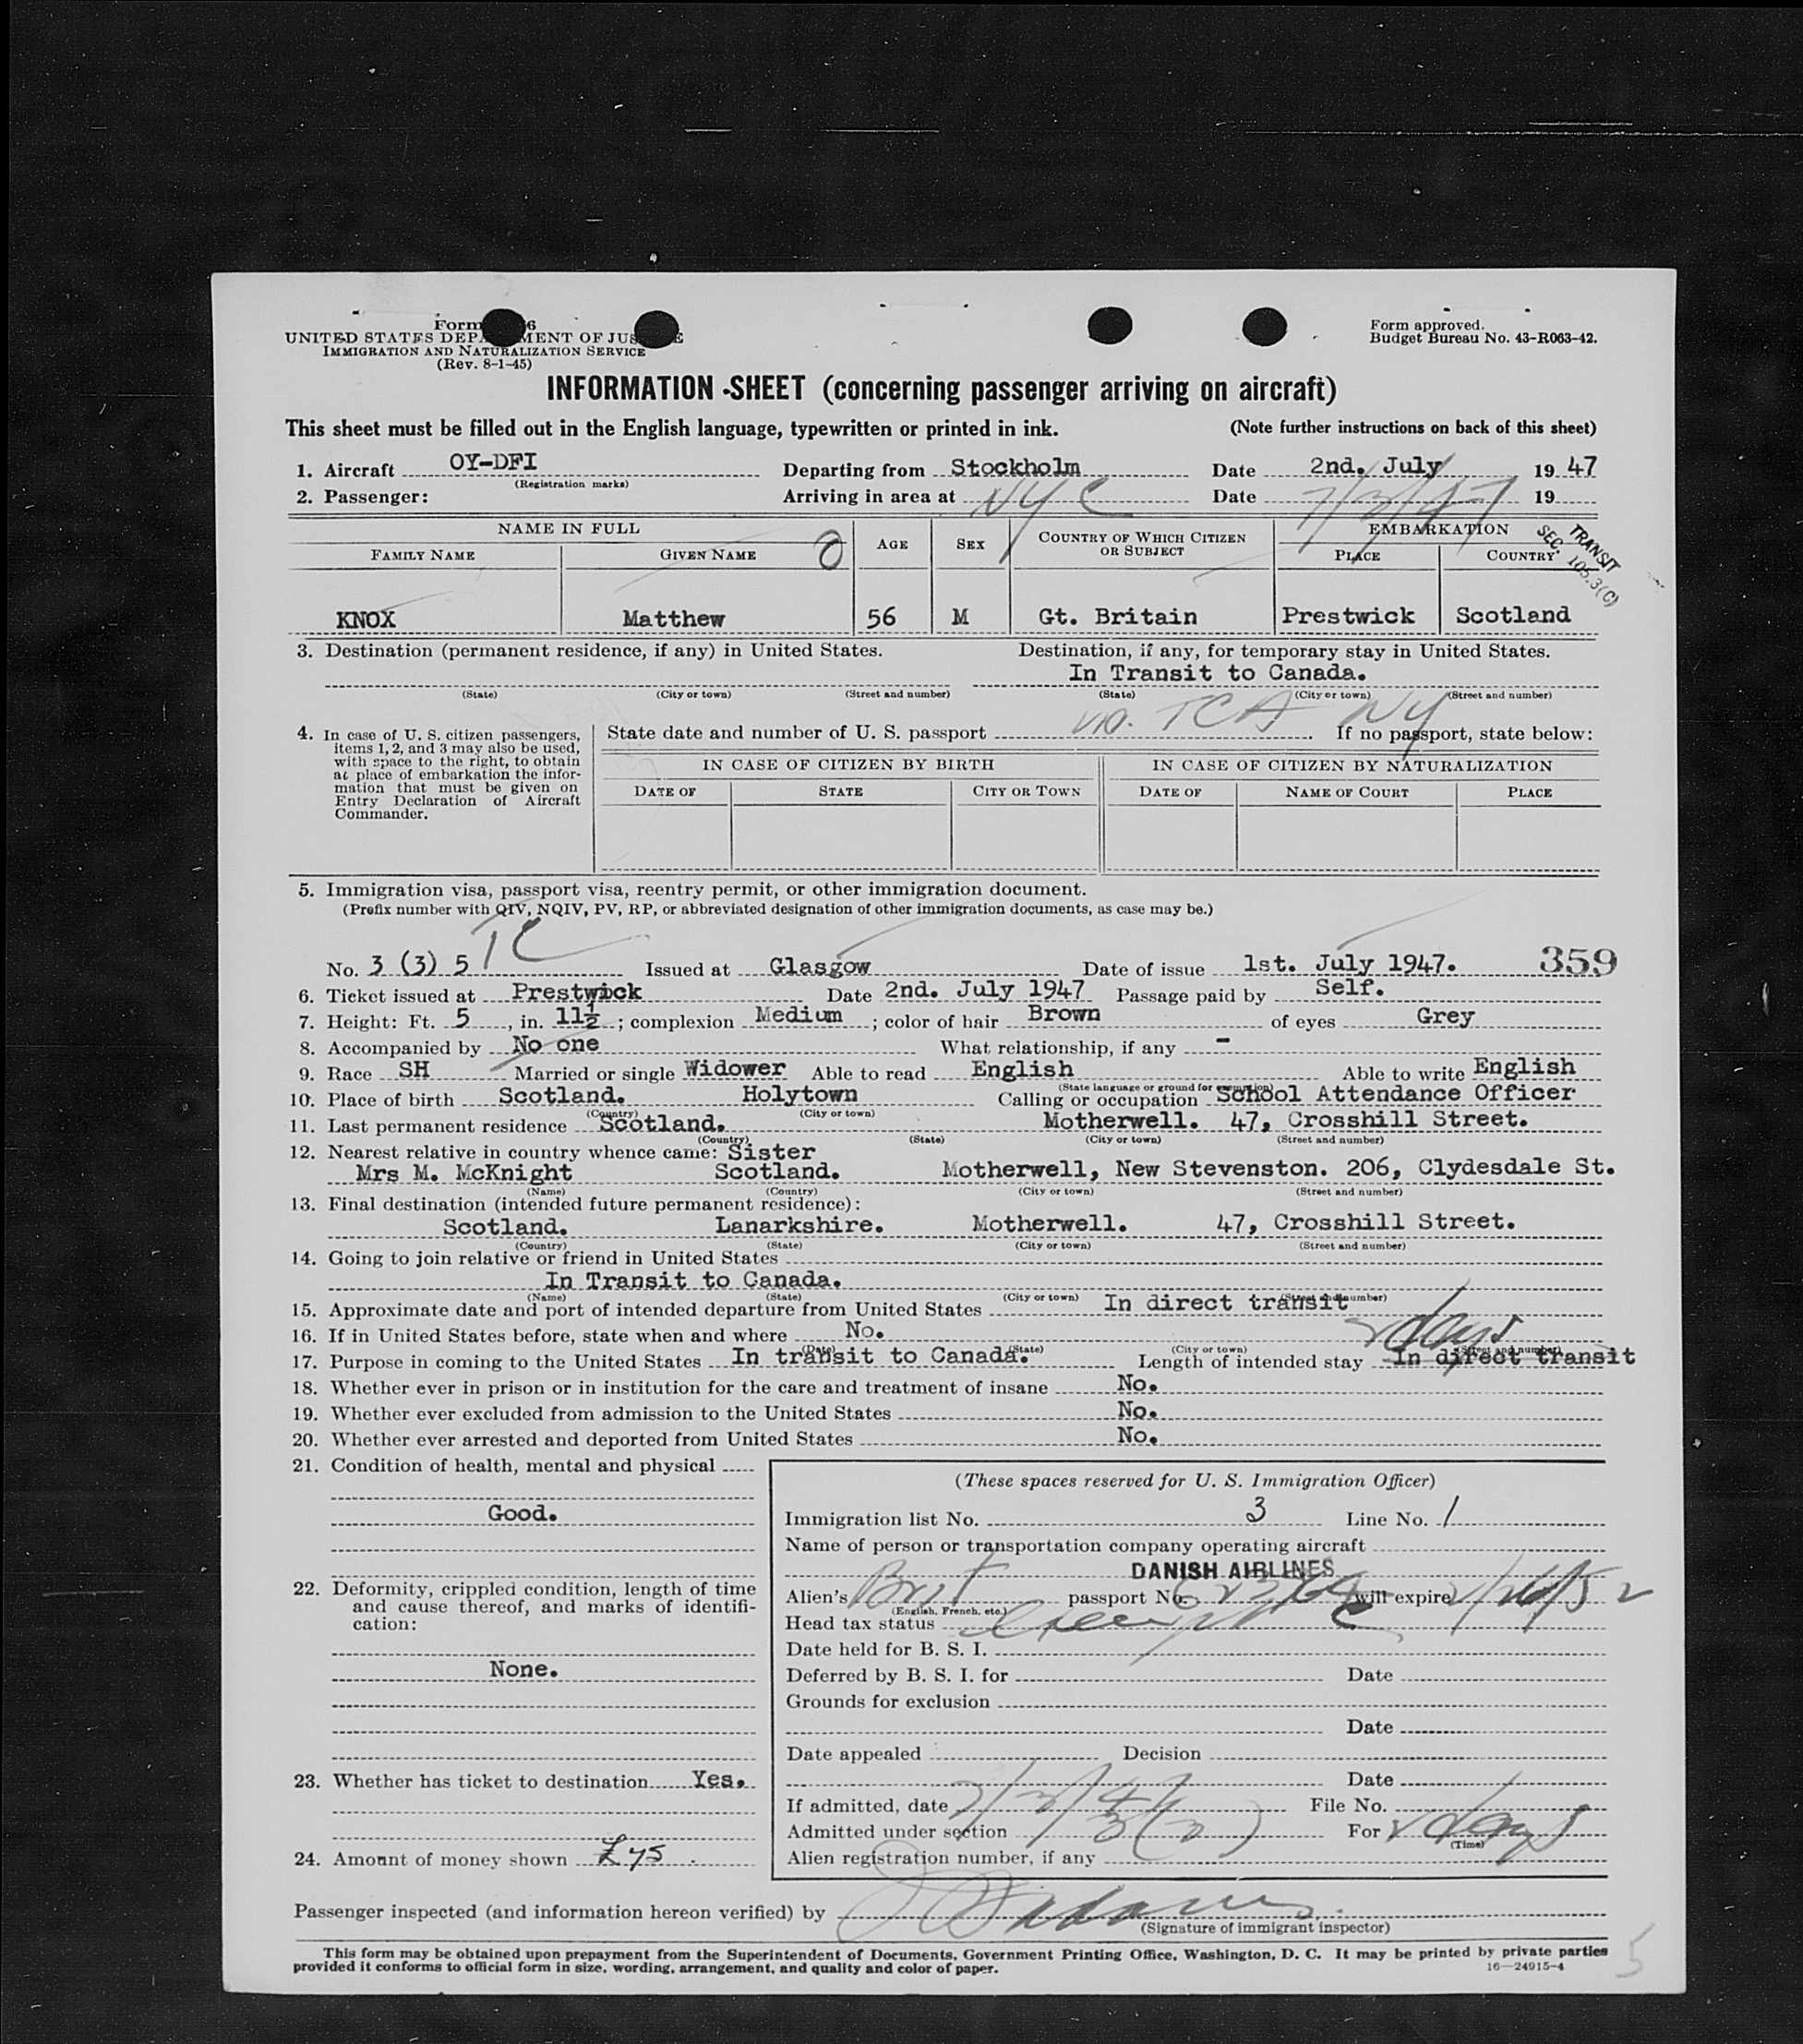 Form
UNITED STATES DEP MENT OF JUS E
IMMIGRATION AND NATURALIZATION SERVICE
(Rev. 8-1-45)
Form approved.
Budget Bureau No. 43-R063-42.
INFORMATION SHEET (concerning passenger arriving on aircraft)
This sheet must be filled out in the English language, typewritten or printed in ink. (Note further instructions on back of this sheet)
1. Aircraft OY-DFI Departing from Stockholm Date 2nd. July 1947
(Registration marks)
2. Passenger: Arriving in area at NYC Date 7/3/47 19
NAME IN FULL AGE SEX COUNTRY OF WHICH CITIZEN OR SUBJECT EMBARKATION
FAMILY NAME GIVEN NAME PLACE COUNTRY
TRANSIT
SEC. 105.3(C)
KNOX Matthew 56 M Gt. Britain Prestwick Scotland
3. Destination (permanent residence, if any) in United States. Destination, if any, for temporary stay in United States.
In Transit to Canada.
(State) (City or town) (Street and number) (State) (City or town) (Street and number)
TCA NY
4. In case of U. S. citizen passengers, items 1, 2, and 3 may also be used, with space to the right, to obtain at place of embarkation the information that must be given on Entry Declaration of Aircraft Commander.
State date and number of U. S. passport If no passport, state below:
IN CASE OF CITIZEN BY BIRTH IN CASE OF CITIZEN BY NATURALIZATION
DATE OF STATE CITY OR TOWN DATE OF NAME OF COURT PLACE
5. Immigration visa, passport visa, reentry permit, or other immigration document.
(Prefix number with QIV, NQIV, PV, RP, or abbreviated designation of other immigration documents, as case may be.)
TC
No. 3 (3) 5 Issued at Glasgow Date of issue 1st. July 1947. 359
6. Ticket issued at Prestwick Date 2nd. July 1947 Passage paid by Self.
7. Height: Ft. 5, in. 11½; complexion Medium; color of hair Brown of eyes Grey
8. Accompanied by No one What relationship, if any -
9. Race SH Married or single Widower Able to read English Able to write English
(State language or ground for exemption)
10. Place of birth Scotland. Holytown Calling or occupation School Attendance Officer
(Country) (City or town)
11. Last permanent residence Scotland. Motherwell. 47, Crosshill Street.
(Country) (State) (City or town) (Street and number)
12. Nearest relative in country whence came: Sister
Mrs M. McKnight Scotland. Motherwell, New Stevenston. 206, Clydesdale St.
(Name) (Country) (City or town) (Street and number)
13. Final destination (intended future permanent residence):
Scotland. Lanarkshire. Motherwell. 47, Crosshill Street.
(Country) (State) (City or town) (Street and number)
14. Going to join relative or friend in United States
In Transit to Canada.
(Name) (State) (City or town) (Street and number)
15. Approximate date and port of intended departure from United States In direct transit
16. If in United States before, state when and where No.
(Date) (State) (City or town) (Street and number)
days
17. Purpose in coming to the United States In transit to Canada. Length of intended stay In direct transit
18. Whether ever in prison or in institution for the care and treatment of insane No.
19. Whether ever excluded from admission to the United States No.
20. Whether ever arrested and deported from United States No.
21. Condition of health, mental and physical
Good.
22. Deformity, crippled condition, length of time and cause thereof, and marks of identification:
None.
23. Whether has ticket to destination Yes.
24. Amount of money shown £75.
(These spaces reserved for U. S. Immigration Officer)
Immigration list No. 3 Line No. 1
Name of person or transportation company operating aircraft
DANISH AIRLINES
Alien's Brit passport No. will expire 2/26/52
(English, French, etc.)
Head tax status
Date held for B. S. I.
Deferred by B. S. I. for Date
Grounds for exclusion
Date
Date appealed Decision
Date
If admitted, date 7/3/47 File No.
Admitted under section 3(3) For 2 days
(Time)
Alien registration number, if any
Passenger inspected (and information hereon verified) by
(Signature of immigrant inspector)
This form may be obtained upon prepayment from the Superintendent of Documents, Government Printing Office, Washington, D. C. It may be printed by private parties
provided it conforms to official form in size, wording, arrangement, and quality and color of paper.
16—24915-4
5